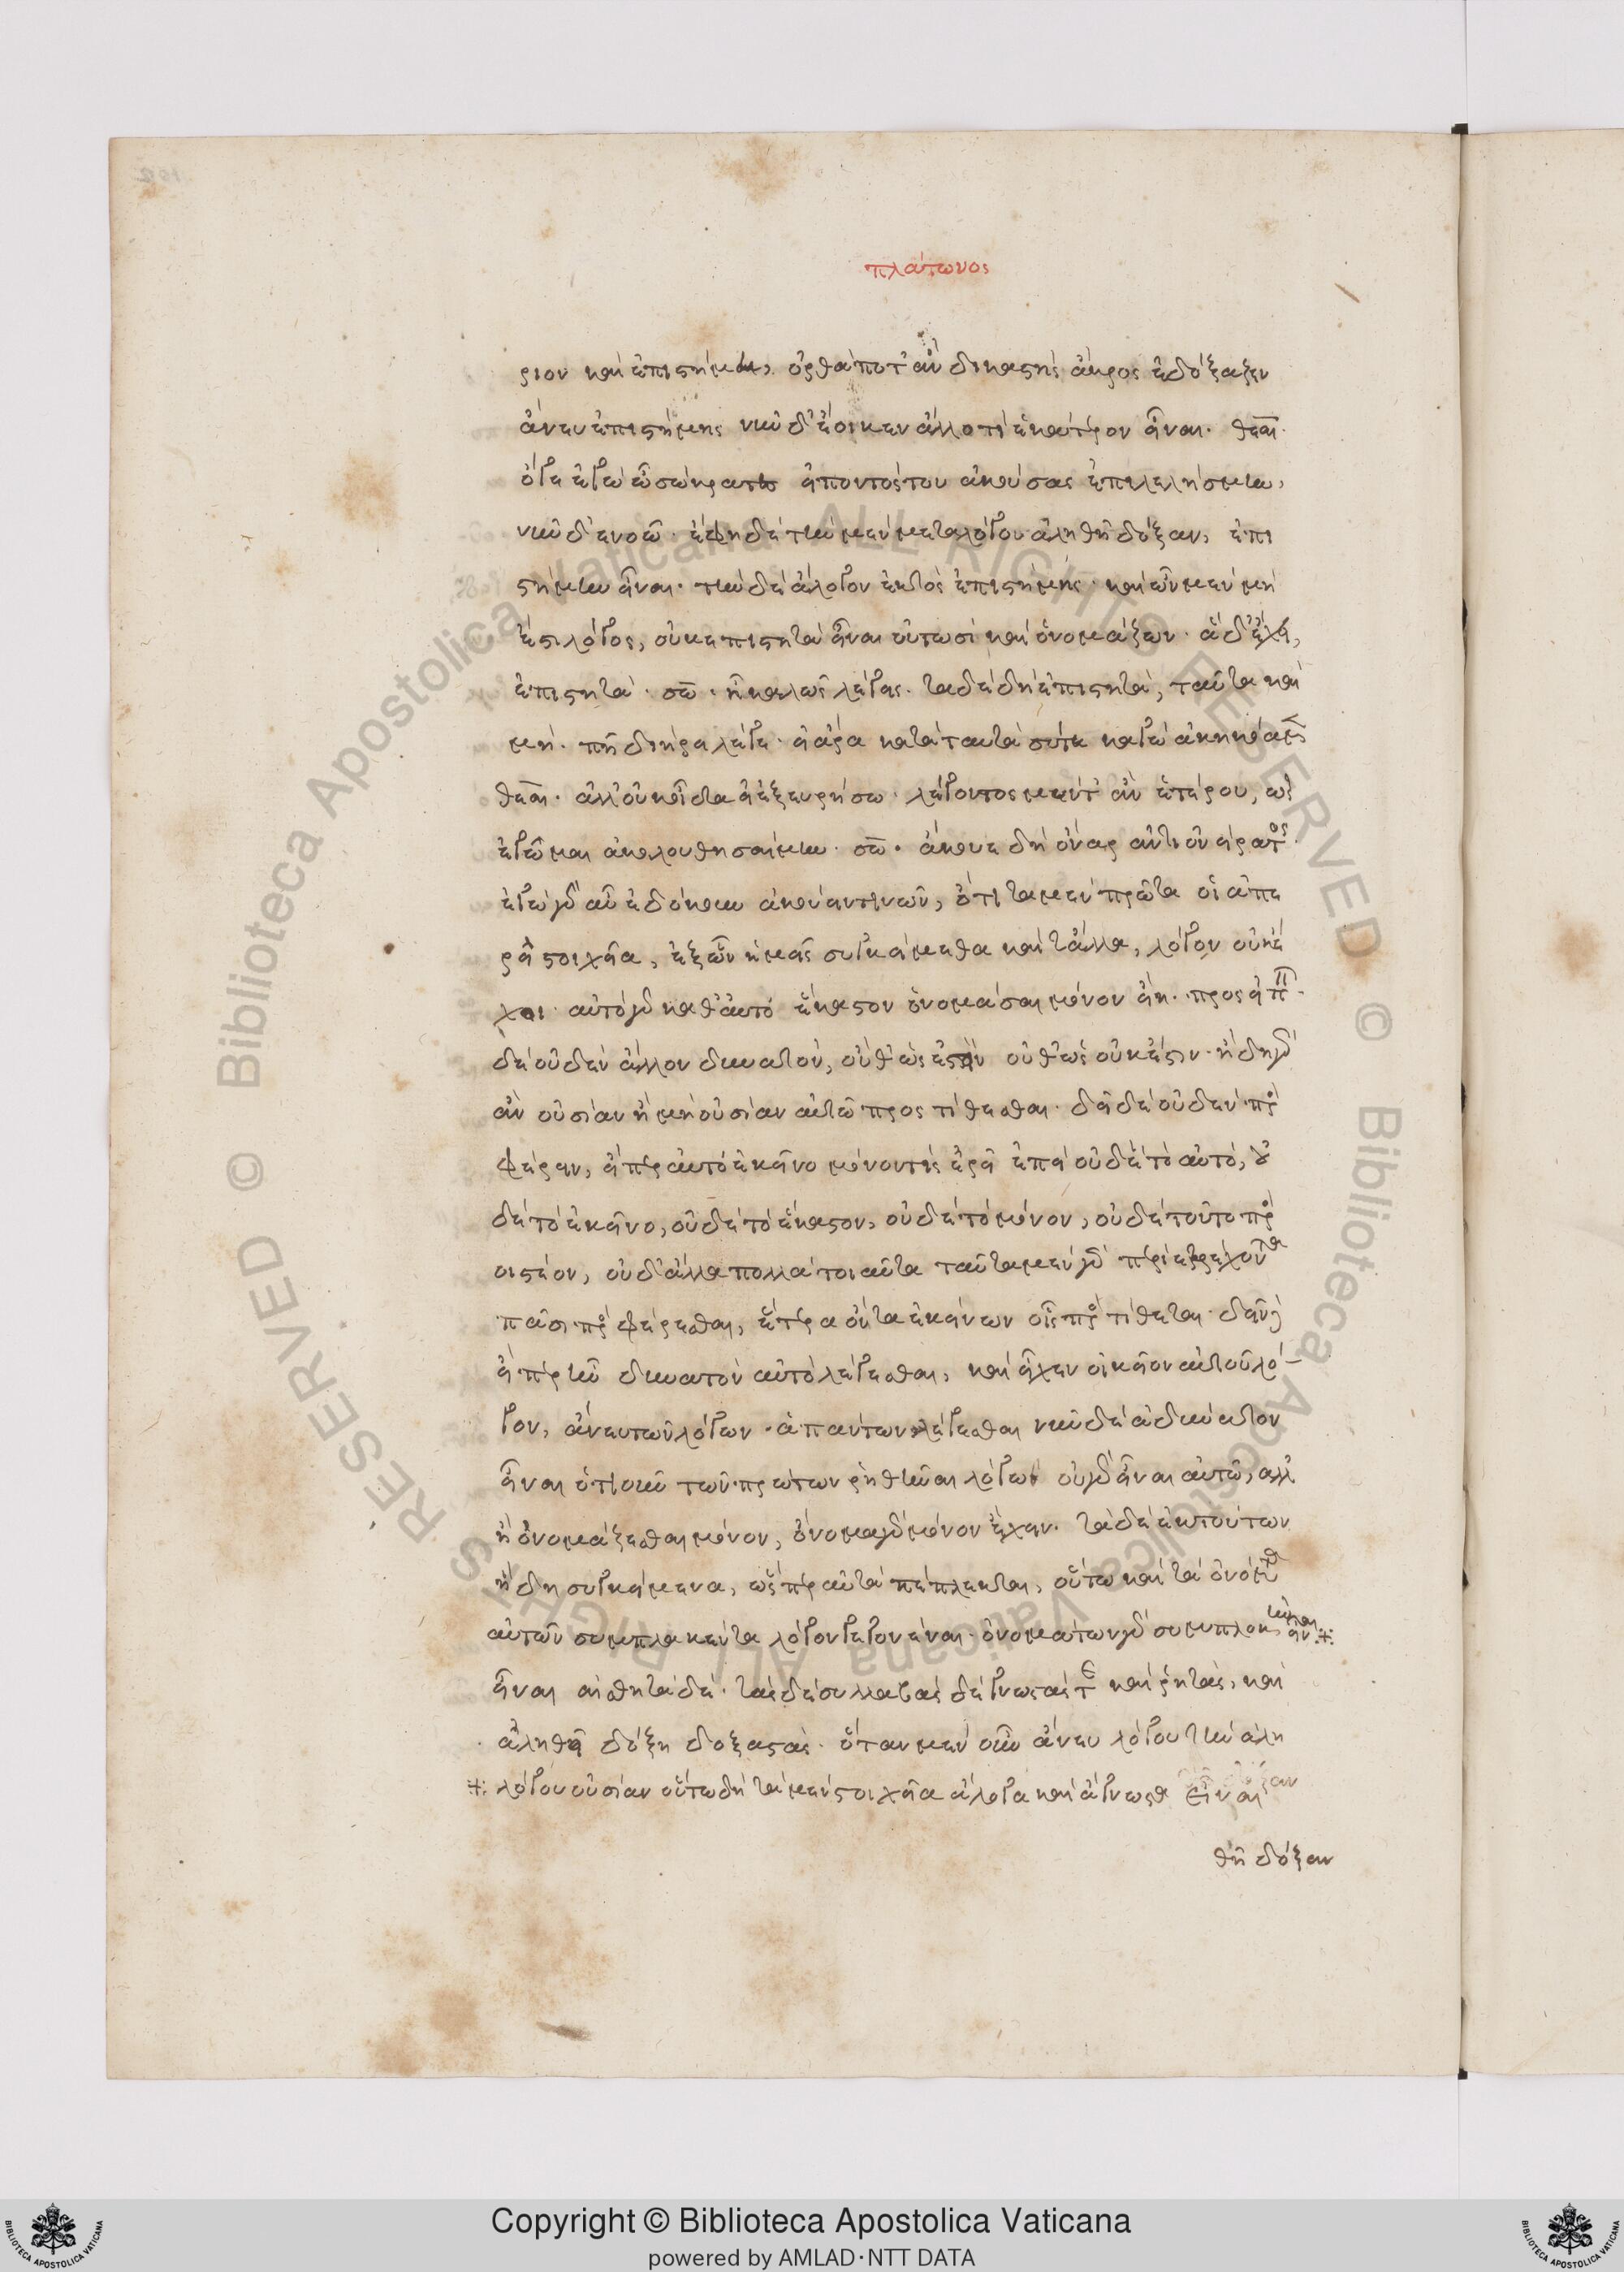 πλάτωνος
ριον καὶ ἐπιστήμη, ὀρθά ποτ' ἂν δικαστὴς ἄκρος ἐδόξαζεν
ἄνευ ἐπιστήμης νῦν δ' ἔοικεν ἄλλο τι ἑκάτερον εἶναι. θεαι.
ὅ γε ἐγὼ ὦ σώκρατες εἰπόντος του ἀκούσας ἐπελελήσμην,
νῦν δ' ἐννοῶ. ἔφη δὲ τὴν μὲν μετὰ λόγου ἀληθῆ δόξαν, ἐπι
στήμην εἶναι. τὴν δὲ ἄλογον ἐκτὸς ἐπιστήμης. καὶ ὧν μὲν μή
ἐστι λόγος, οὐκ ἐπιστητὰ εἶναι οὑτωσὶ καὶ ὀνομάζων. ἃ δ' ἔχει,
ἐπιστητά. σω. ἦ καλῶς λέγεις. τὰ δὲ δὴ ἐπιστητὰ, ταῦτα καὶ
μὴ. πῆ διήρει λέγε. εἰ ἄρα κατὰ ταυτὰ σύ τε κἀγὼ ἀκηκόαμεν
θεαι. ἀλλ' οὐκ οἶδα εἰ ἐξευρήσω. λέγοντος μέντ' ἂν ἑτέρου, ὡς
ἐγῷμαι ἀκολουθησαίμην. σω. ἄκουε δὴ ὄναρ ἀντὶ ὀνείρατος
ἐγὼ γὰρ αὖ ἐδόκουν ἀκούειν τινῶν, ὅτι τὰ μὲν πρῶτα οἱαπε
ρεὶ στοιχεῖα, ἐξ ὧν ἡμεῖς συγκείμεθα καὶ τἄλλα, λόγον οὐκ ἔ
χοι. αὐτὸ γὰρ καθ' αὑτὸ ἕκαστον ὀνομάσαι μόνον εἴη. προσειπεῖν
δὲ οὐδὲν ἄλλον δυνατὸν, οὔθ' ὡς ἔστιν οὔθ' ὡς οὐκ ἔστιν. ἤδη γὰρ
ἂν οὐσίαν ἢ μὴ οὐσίαν αὐτῶ προστίθεσθαι. δεῖ δὲ οὐδὲν προσ
φέρειν, εἴπερ αὐτὸ ἐκεῖνο μόνον τὶς ἐρεῖ ἐπεὶ οὐδὲ τὸ αὐτὸ, οὐ
δὲ τὸ ἐκεῖνο, οὐδὲ τὸ ἕκαστον, οὐδὲ τὸ μόνον, οὐδὲ τοῦτο προσ
οιστέον, οὐδ' ἄλλα πολλὰ τοιαῦτα ταῦτα μὲν γὰρ περιτρέχοντα
πᾶσι προσφέρεσθαι, ἕτερα ὄντα ἐκείνων οἷς προστίθεται. δεῖν δὲ
εἴπερ ἦν δυνατὸν αὐτὸ λέγεσθαι, καὶ εἶχεν οἰκεῖον αὑτοῦ λό-
γον, ἄνευ τῶν λόγων ἁπάντων λέγεσθαι νῦν δὲ ἀδύνατον
εἶναι ὁτιοῦν τῶν πρώτων ῥηθῆναι λόγω οὐ γὰρ εἶναι αὐτῶ, ἀλλ'
ἢ ὀνομάζεσθαι μόνον, ὄνομα γὰρ μόνον ἔχειν. τὰ δὲ ἐκ τούτων
ἤδη συγκείμενα, ὥσπερ αὐτὰ πέπλεκται, οὕτω καὶ τὰ ὀνόματα
αὐτῶν συμπλακέντα λόγον γεγονέναι. ὀνομάτων γὰρ συμπλοκὴν εἶναι
εἶναι αἰσθητὰ δέ. τὰς δὲ συλλαβὰς δὲ γνωστάς τε καὶ ῥητὰς, καὶ
ἀληθεῖ δόξη δοξαστάς. ὅταν μὲν οὖν ἄνευ λόγου τὴν ἀλη
λόγου οὐσίαν οὕτω δὴ τὰ μὲν στοιχεῖα ἄλογα καὶ ἄγνωστα εἶναι
θῆ δόξαν
Copyright © Biblioteca Apostolica Vaticana
powered by AMLAD·NTT DATA